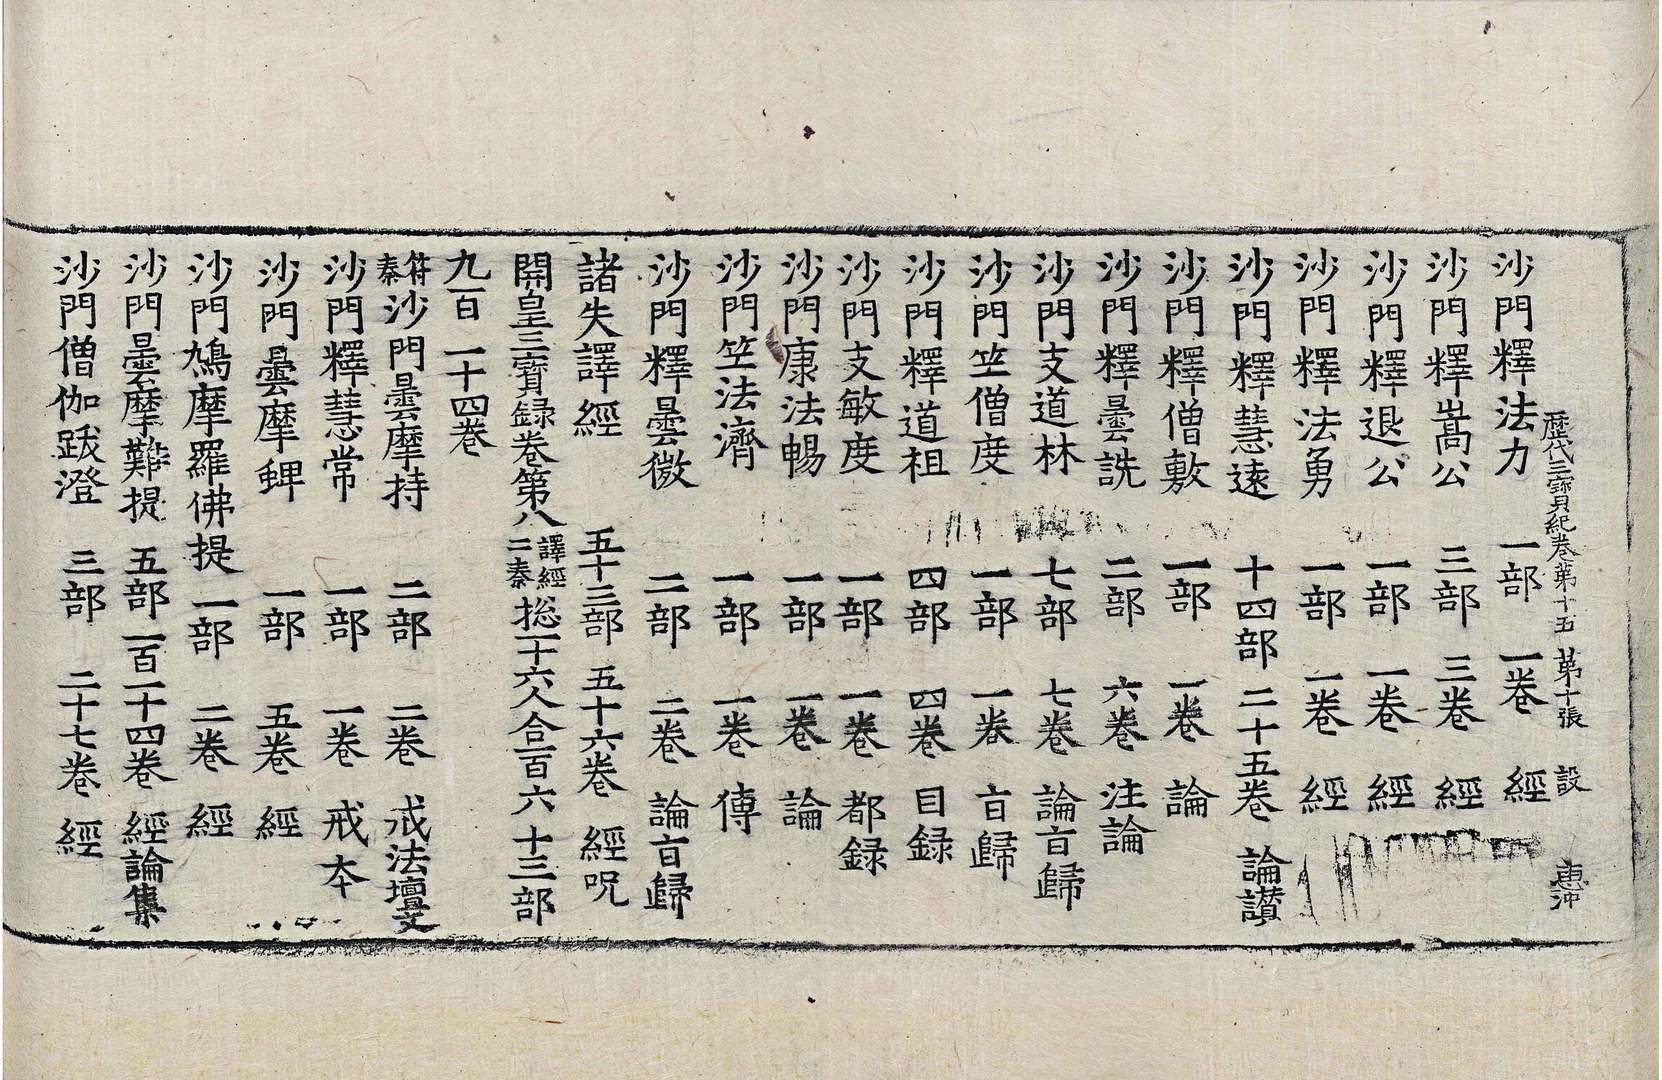 歷代三寶紀卷第十五　第十張　設　惠沖
沙門釋法力　一部　一卷　經
沙門釋嵩公　三部　三卷　經
沙門釋退公　一部　一卷　經
沙門釋法勇　一部　一卷　經
沙門釋慧遠　十四部　二十五卷　論讃
沙門釋僧敷　一部　一卷　論
沙門釋曇詵　二部　六卷　注論
沙門支道林　七部　七卷　論㫖歸
沙門竺僧度　一部　一卷　㫖歸
沙門釋道祖　四部　四卷　目録
沙門支敏度　一部　一卷　都録
沙門康法暢　一部　一卷　論
沙門竺法濟　一部　一卷　傳
沙門釋曇微　二部　二卷　論㫖歸
諸失譯經　五十三部　五十六卷　經呪
開皇三寶録卷第八譯經二秦揔一十六人合一百六十三部
九百一十四卷
苻秦沙門曇摩持　二部　二卷　戒法壇文
沙門釋慧常　一部　一卷　戒本
沙門曇摩蜱　一部　五卷　經
沙門鳩摩羅佛提　一部　二卷　經
沙門曇摩難提　五部　一百一十四卷　經論集
沙門僧伽跋澄　三部　二十七卷　經